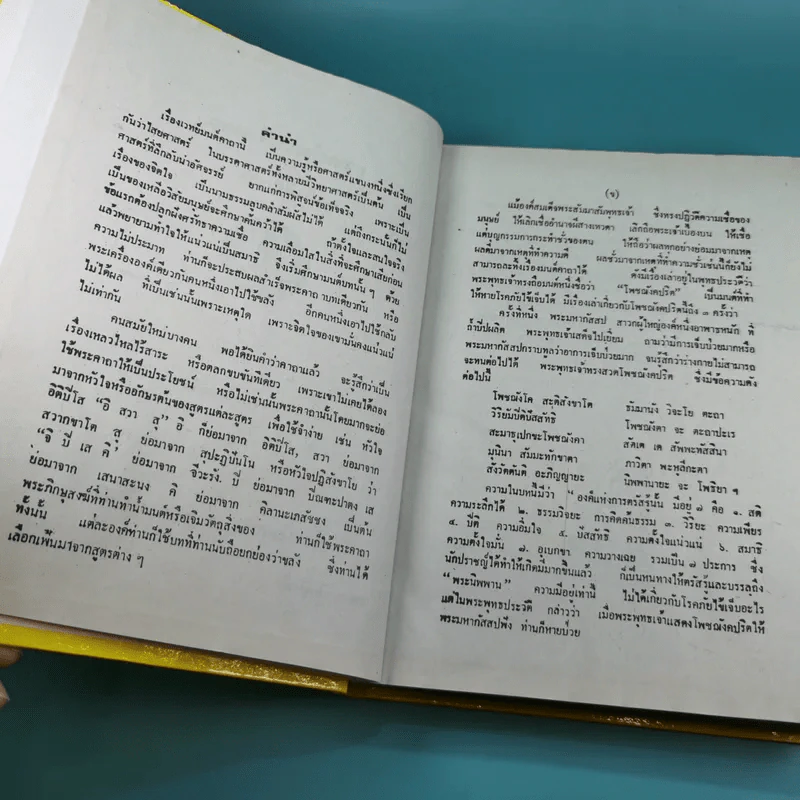 คำนำ
เรื่องเวทย์มนต์คาถานี้ เป็นความรู้หรือศาสตร์แขนงหนึ่งซึ่งเรียก
กันว่าไสยศาสตร์ ในบรรดาศาสตร์ทั้งหลายมีวิทยาศาสตร์เป็นต้น เป็น
ศาสตร์ที่ลึกลับน่าอัศจรรย์ ยากแก่การพิสูจน์ข้อเท็จจริง เพราะเป็น
เรื่องของจิตใจ เป็นนามธรรมลูบคลำสัมผัสไม่ได้ แต่ถึงกระนั้นก็ไม่
เป็นของเหลือวิสัยมนุษย์จะศึกษาค้นคว้าได้ ถ้าตั้งใจและสนใจจริง
ข้อแรกต้องปลูกฝังศรัทธาความเชื่อ ความเลื่อมใสในสิ่งที่จะศึกษาเสียก่อน
แล้วพยายามทำใจให้แน่วแน่เป็นสมาธิ จึงเริ่มศึกษามนต์บทนั้น ๆ ด้วย
ความไม่ประมาท ท่านก็จะประสบผลสำเร็จพระคาถาบทเดียวกัน หรือ
พระเครื่ององค์เดียวกันคนหนึ่งเอาไปใช้ขลัง อีกคนหนึ่งเอาไปใช้กลับ
ไม่ได้ผล ที่เป็นเช่นนั้นเพราะเหตุใด เพราะจิตใจของเขามั่นคงแน่วแน่
ไม่เท่ากัน
คนสมัยใหม่บางคน พอได้ยินคำว่าคาถาแล้ว จะรู้สึกว่าเป็น
เรื่องเหลวไหลไร้สาระ หรือตลกขบขันทีเดียว เพราะเขาไม่เคยได้ลอง
ใช้พระคาถาให้เป็นประโยชน์ หรือไม่เช่นนั้นพระคาถานั้นโดยมากจะย่อ
มาจากหัวใจหรืออักษรต้นของสูตรแต่ละสูตร เพื่อใช้จำง่าย เช่น หัวใจ
อิติปิโส "อิ สวา สุ" อิ ก็ย่อมาจาก อิติปิโส, สวา ย่อมาจาก
สวากขาโต สุ ย่อมาจาก สุปฏิปันโน หรือหัวใจปฏิสังขาโย ว่า
"จิ ปิ เส คิ" ย่อมาจาก จีวะรัง. ปิ ย่อมาจาก ปิณฑะปาตัง เส
ย่อมาจาก เสนาสะนัง คิ ย่อมาจาก คิลานะเภสัชชัง เป็นต้น
พระภิกษุสงฆ์ที่ท่านทำน้ำมนต์หรือเจิมวัตถุสิ่งของ ท่านก็ใช้พระคาถา
ทั้งนั้น แต่ละองค์ท่านก็ใช้บทที่ท่านนับถือยกย่องว่าขลัง ซึ่งท่านได้
เลือกเฟ้นมาจากสูตรต่าง ๆ
(ข)
แม้องค์สมเด็จพระสัมมาสัมพุทธเจ้า ซึ่งทรงปฏิวัติความเชื่อของ
มนุษย์ ให้เลิกเชื่ออำนาจผีสางเทวดา เลิกถือพระเจ้าเบื้องบน ให้เชื่อ
แต่บุญกรรมการกระทำชั่วของตน ให้ถือว่าผลทุกอย่างย่อมมาจากเหตุ
ผลดีมาจากเหตุที่ทำความดี ผลชั่วมาจากเหตุที่ทำความชั่วเช่นนี้ก็ยังไม่
สามารถละทิ้งเรื่องมนต์คาถาได้ ดังมีเรื่องเล่าอยู่ในพุทธประวัติว่า
พระพุทธเจ้าทรงถือมนต์หนึ่งชื่อว่า "โพชฌังคปริต" เป็นมนต์ที่ทำ
ให้หายโรคภัยไข้เจ็บได้ มีเรื่องเล่าเกี่ยวกับโพชฌังคปริตนี้ถึง ๓ ครั้งว่า
ครั้งที่หนึ่ง พระมหากัสสป สาวกผู้ใหญ่องค์หนึ่งอาพาธหนัก ที่
ถ้ำปิปผลิต พระพุทธเจ้าเสด็จไปเยี่ยม ถามว่ามีการเจ็บป่วยมากหรือ
พระมหากัสสปกราบทูลว่าอาการเจ็บป่วยมาก จนรู้สึกว่าร่างกายไม่สามารถ
จะทนต่อไปได้ พระพุทธเจ้าทรงสวดโพชฌังคปริต ซึ่งมีข้อความดัง
ต่อไปนี้
โพชฌังโค สะติสังขาโต ธัมมานัง วิจะโย ตะถา
วิริยัมปีติปัสสัทธิ โพชฌังคา จะ ตะถาปะเร
สะมาธุเปกขะโพชฌังคา สัตเต เต สัพพะทัสสินา
มุนินา สัมมะทักขาตา ภาวิตา พะหุลีกะตา
สังวัตตันติ อะภิญญายะ นิพพานายะ จะ โพธิยา ฯ
ความในบทนี้มีว่า "องค์แห่งการตรัสรู้นั้น มีอยู่ ๗ คือ ๑. สติ
ความระลึกได้ ๒. ธรรมวิจยะ การคิดค้นธรรม ๓. วิริยะ ความเพียร
๔. ปีติ ความอิ่มใจ ๕. ปัสสัทธิ ความตั้งใจแน่วแน่ ๖. สมาธิ
ความตั้งใจมั่น ๗. อุเบกขา ความวางเฉย รวมเป็น ๗ ประการ ซึ่ง
นักปราชญ์ได้ทำให้เกิดมีมากขึ้นแล้ว ก็เป็นหนทางให้ตรัสรู้และบรรลุถึง
"พระนิพพาน" ความมีอยู่เท่านี้ ไม่ได้เกี่ยวกับโรคภัยไข้เจ็บอะไร
แต่ในพระพุทธประวัติ กล่าวว่า เมื่อพระพุทธเจ้าแสดงโพชฌังคปริตให้
พระมหากัสสปฟัง ท่านก็หายป่วย